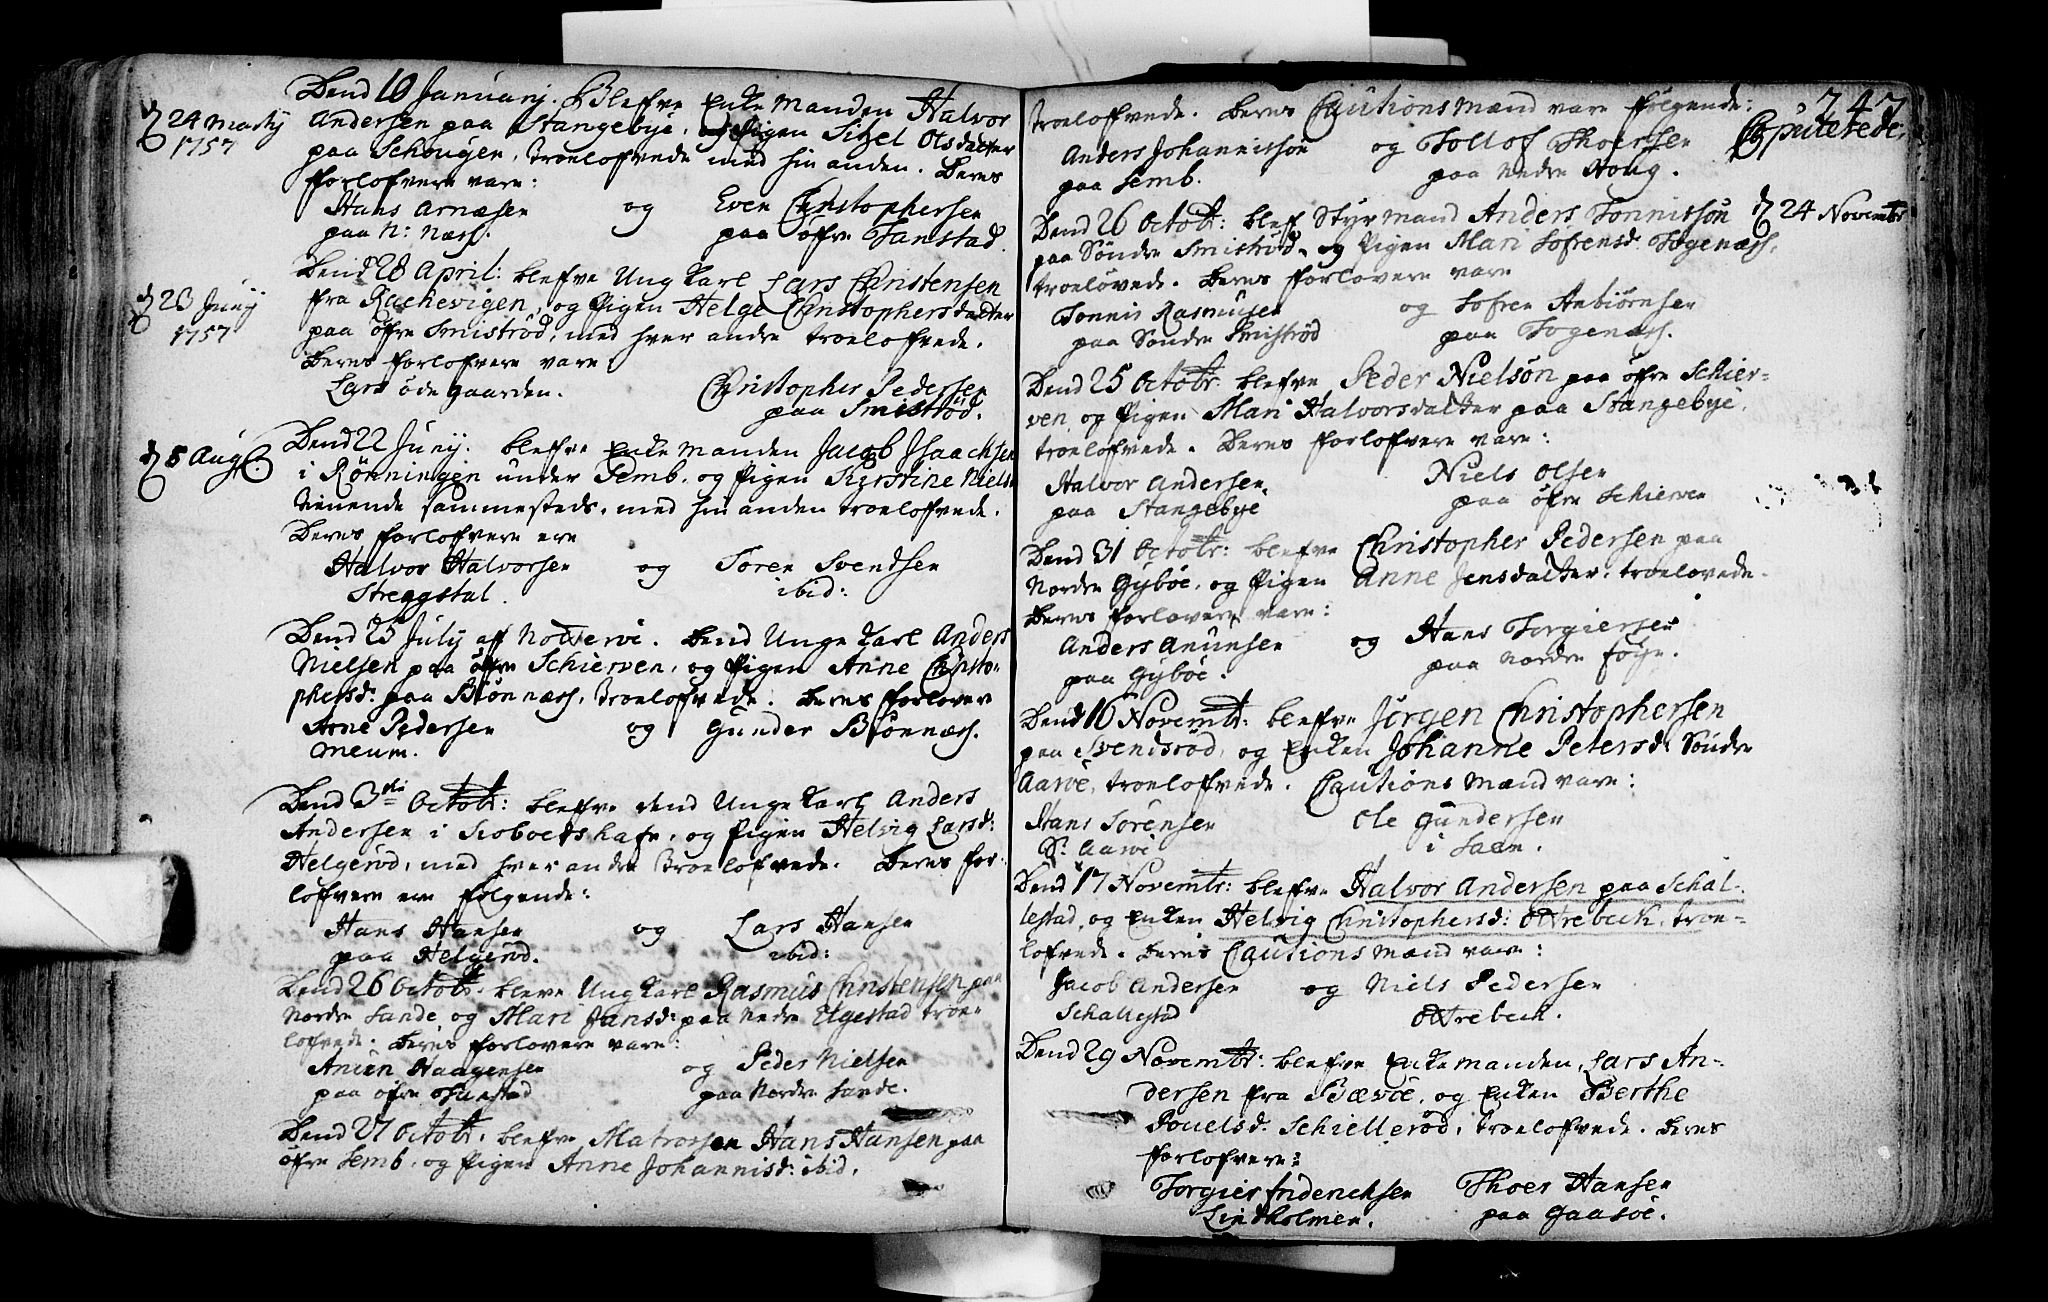 d 24 Martij
1757
Dend 10 Januarij. Blefve Enke Manden Halvor
Andersen paa Stangebye, og Pigen Sitzel Olsdatter
paa Schougen, troelofvede med hin anden. Deres
forlofvere vare:
Hans Arnesen og Even Christophersen
paa N: Næss. paa öfre Tanstad.
d 23 Junij
1757
Dend 28 April: blefve Ung Karl Lars Christensen
fra Rachevigen, og Pigen Helge Christophersdatter
paa öfre Smiströd, med hver andre troelofvede.
Deres forlofvere vare
Lars öde gaarden. Christopher Pedersen
paa Smiströd.
d 8 Aug
Dend 22 Junij. blefve Enke Manden Jacob Isaachsen
i Rønningen under Semb, og Pigen Kirstine Niels
tienende sammesteds, med hin anden troelofvede.
Deres forlofvere ere
Halvor Halvorsen og Soren Svendsen
Streggstal. ibid:
Dend 25 July af Notterøe. Dend Unge Karl Anders
Nielsen paa öfre Schierven, og Pigen Anne Christo-
phersd: paa Biönness, troelofvede. Deres forlover
Arne Pedersen og Gunder Biönness.
Meum.
Dend 3die Octobr: blefve dend Unge Karl Anders
Andersen i Scoboeshafn, og Pigen Helvig Larsd:
Helgeröd, med hver andre troelofvede. Deres for-
lofvere ere følgende:
Hans Hansen og Lars Hansen
paa Helgeröd. ibid:
Dend 26 Octobr. bleve Ung Karl Rasmus Christensen paa
Nordre Sande, og Mari Jansd: paa Nedre Elgestad troe-
lofvede. Deres forlovere vare:
Anien Haagensen og Peder Nielsen
paa öfre paa Nordre Sande.
Dend 27 Octobr. blefve Matrossen Hans Hansen paa
öfre Semb, og Pigen Anne Johannisd: ibid.
747
troelofvede. Deres Cautions mænd vare følgende:
Copulerede.
Anders Johannissön og Tollof Thoersen
paa Semb. paa Nedre Houg.
Dend 26 Octobr: blef Styrmand Anders Tonnissøn
d 24 Novembr
paa Söndre Smiströd, og Pigen Mari Sofrensd. Togeness,
troelovede. Deres forlovere vare
Tonnis Rasmusen og Sofren Anbiörnsen
paa Söndre Smiströd paa Togeness.
Dend 25 Octobr: blefve Peder Nielsön paa öfre Schier-
ven, og Pigen Mari Halvorsdatter paa Stangebye,
troelofvede. Deres forlofvere vare:
Halvor Andersen Niels Olsen
paa Stangebye paa öfre Schierven
Dend 31 Octobr: blefve Christopher Pedersen paa
Nordre Gybøe, og Pigen Anne Jensdatter, troelovede.
Deres forlovere vare:
Anders Anunsen og Hans Torgiersen
paa Gybøe. paa Nordre Föyn.
Dend 16 Novembr: blefve Jörgen Christophersen
paa Svendsröd, og Enken Johanne Petersd: Söndre
Aarøe, troelofvede. Cautions Mænd vare:
Hans Sörensen Ole Gundersen
S: Aarøe i Saen.
Dend 17 Novembr: blefve Halvor Andersen paa Schal-
lestad, og Enken Helvig Christophersd: Ottrebeck, troe-
lofvede. Deres Cautions mænd vare:
Jacob Andersen og Niels Pedersen
Schallestad Ottrebeck.
Dend 29 Novembr: blefve Enke Manden, Lars An-
dersen fra Bævøe, og Enken Berthe
Povelsd. Schielleröd, troelofvede. Deres
forlofvere:
Torgier Friderichsen Thoer Hansen
Lindholmen. paa Gaasøe.